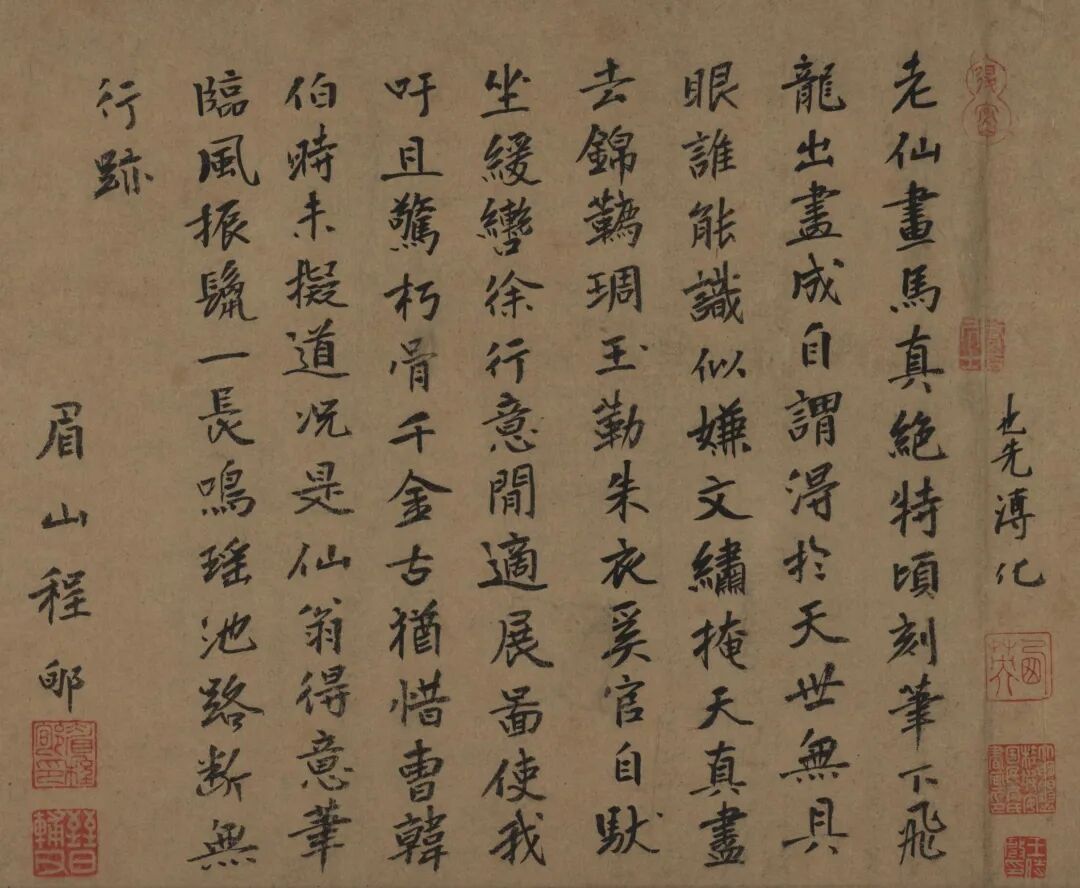 也先溥化
老仙畫馬真絕特頃刻筆下飛
龍出畫成自謂淂於天世無具
眼誰能識似嫌文繡掩天真盡
去錦韉琱玉勒朱衣奚官自馱
坐緩轡徐行意閒適展啚使我
吁且驚朽骨千金古猶惜曹韓
伯時未擬道况是仙翁得意筆
臨風振鬛一長鳴瑶池路斷無
行跡
眉山程郇